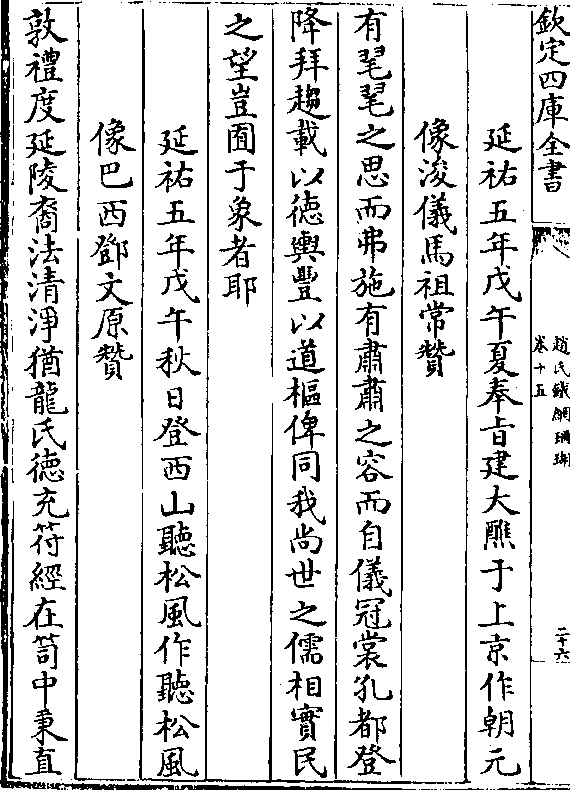 欽定四庫全書
趙氏鐵網珊瑚
卷十五
二十六
延祐五年戊午夏奉旨建大醮于上京作朝元
像浚儀馬祖常贊
有髦髦之思而弗施有肅肅之容而自儀冠裳孔都登
降拜趨載以德輿豐以道樞俾同我尚世之儒相實民
之望豈囿于象者耶
延祐五年戊午秋日登西山聽松風作聽松風
像巴西鄧文原贊
敦禮度延陵裔法清淨猶龍氏德充符經在笥中秉直